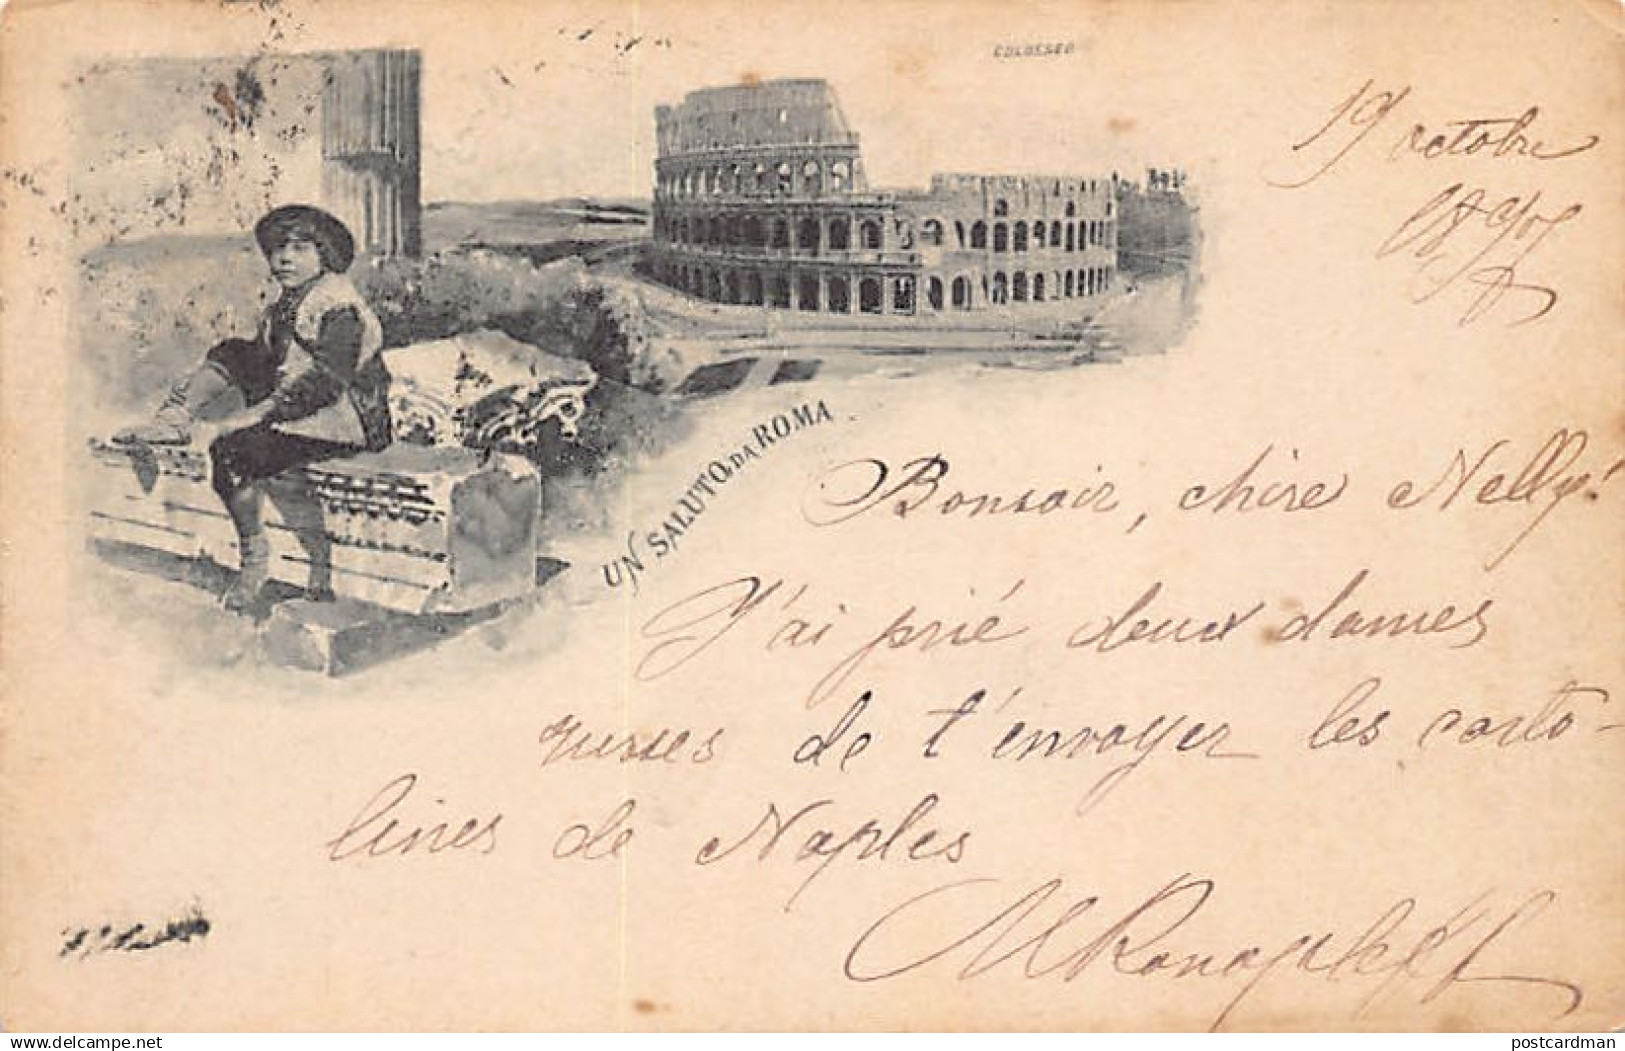 COLOSSEO
19 octobre
UN SALUTO DA ROMA
Bonsoir, chère Nelly!
J'ai prié deux dames
russes de t'envoyer les carto-
lines de Naples
Delcampe.net
postcardman